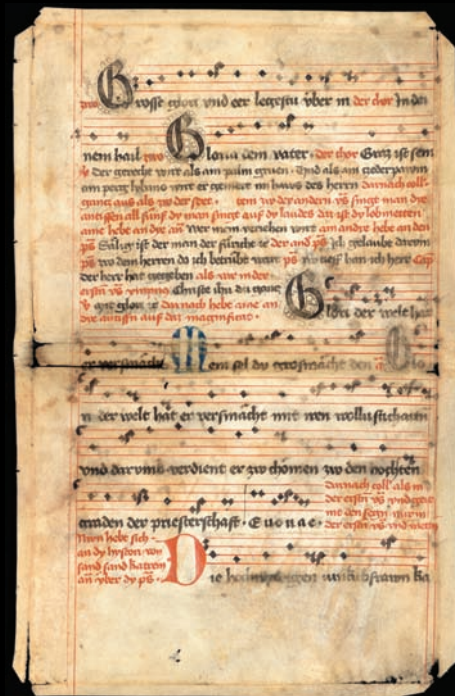 Grosse glori vnd eer legestu vber in der chor In dei
nem hail zwo Gloria dem vater · der chor Groz ist sein
der gerecht wirt als am palm gruen · Vnd als am zederpawm
am perg lybano wirt er gemert im haws des herrn darnach coll
ganng aus als zw der · zw der andern vs singt man dye
antiffen all funf dy man singt auf dy laudes daz ist dy lobmetten
aine hebe an dye Wer mein veriehen wirt am andre hebe an den
ps Sälig ist der man der fürcht der and ps Ich gelaubt darvm
ps zw dem herren do ich betrübt wart ps herr Cap
der herr hat gegeben als wie in der
ersten vs ympnus Christe ihu du ganz
glori darnach hebe aine an
dye antiffn auf daz magnificat · Glori der welt hat
er versmächt Mein sel dy grosmächt den Glo
ri der welt hat er versmächt mit iren wollustichaiten
vnd darvmb verdient er zw chömen zw den hochsten
darnach coll als in
der ersten vs
graden der priesterschaft · Euouae · der ersten vs vnd
Nwn hebt sich
an dy hystori von
sand sand katrein Die hochwirdigen iunkchfrawn ka
vber dy ps ·